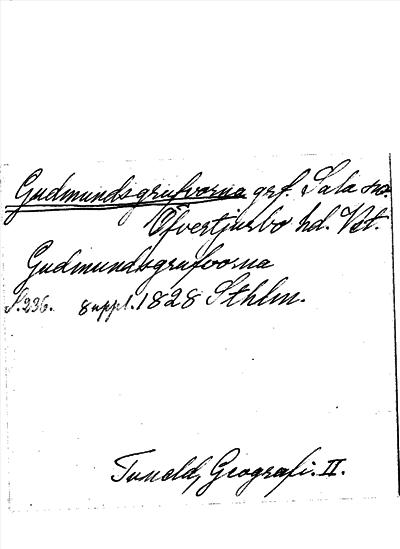 Gudmundsgrufvorna grf. Sala sn.
Öfvertjurbo hd. Vst.
Gudmundsgrufvorna
S. 236. 8 uppl. 1828 Sthlm.
Tuneld, Geografi. II.